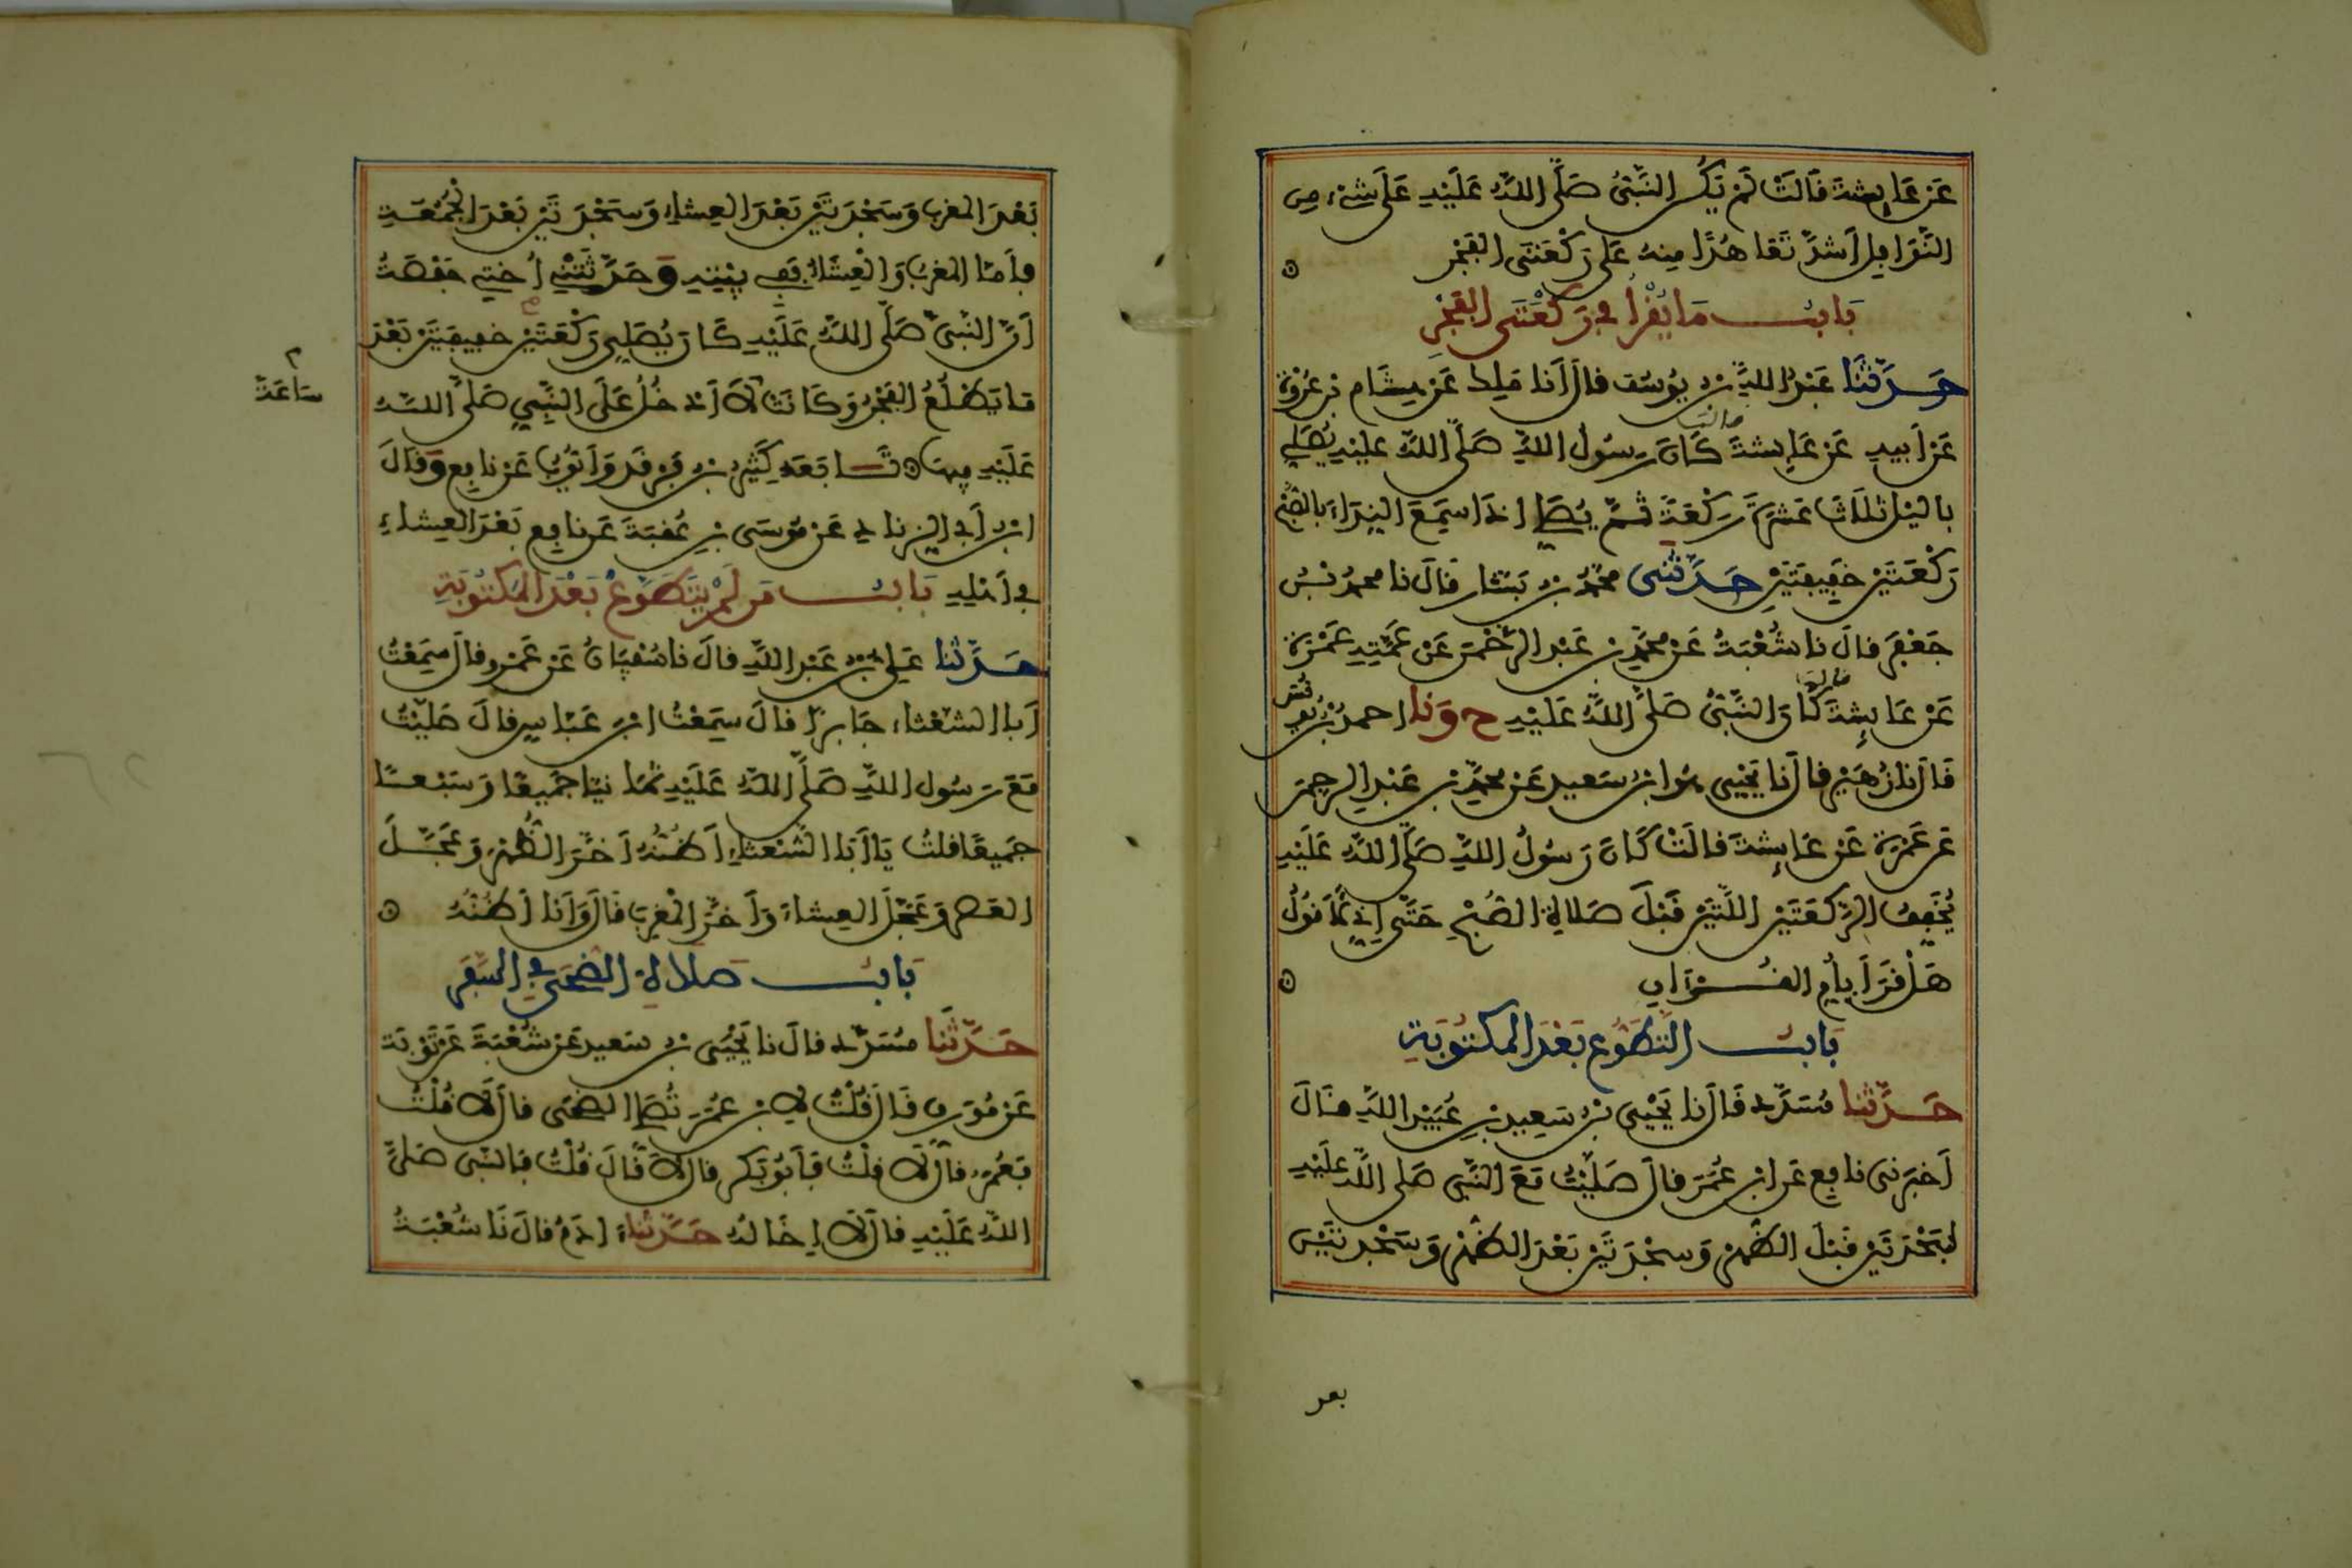 عَن عَايِشةَ قَالَتْ لَمْ يَكُنِ النَّبِىُّ صَلَّى اللهُ عَلَيْهِ عَلَى شَىْءٍ مِن
النَّوَافِل أَشدَّ تَعَاهُدًا مِنهُ عَلَى رَكْعَتَى الفَجْرِ
بَابُ مَا يُقْرَأُ فِي رَكْعَتَى الفَجْرِ
حَدَّثَنَا عَبْدُ اللهِ بن يُوسُف قال أنا مَلِك عَنْ هِشَام بن عُرْوَةَ
عَن أَبيهِ عَن عَايِشةَ قالت كَانَ رَسُولُ اللهِ صَلَّى اللهُ عليْهِ يُصَلِّي
بِاليْلِ ثَلَاثَ عَشْرَةَ رَكْعَةً ثُمَّ يُصَلِّي إذَا سَمِعَ النِدَاءَ بالصُّبْحِ
رَكْعَتَيْنِ خَفِيفَتَيْنِ حَدَّثَنِى مُحَمَّدُ بن بَشَّار قَالَ نا محمدُ بنُ
جَعْفَرٍ قالَ نا شُعْبَةُ عَنْ مُحَمَّدِ بنِ عَبْدِ الرَّحْمن عَنْ عَمَّتِهِ عَمْرَةَ
عَنْ عَايِشةَ قالت كَانَ النَّبِىُّ صَلَّى اللهُ عَلَيْهِ ح وَنا احمدُ بْنُ يُونُسَ
قَالَ نا زُهَيْر قالَ نا يَحْيَى هُوَ ابْنُ سَعيدٍ عَنْ محمَّدِ بنِ عَبْدِ الرحمن
عَن عَمْرَةَ عَنْ عَايِشةَ قالَتْ كَانَ رَسُولُ اللهِ صَلَّى اللهُ عَلَيْهِ
يُخَفِّفُ الرَّكعَتَيْنِ اللَّتَيْنِ قَبْلَ صَلَاةِ الصُّبْحِ حَتَّى إِنِّي لَأَقُولُ
هَلْ قَرَأَ بِأُمِّ القُرْآنِ
بَابُ التَّطَوُّع بَعْدَ المَكْتُوبَةِ
حَدَّثَنا مُسَدَّد قَالَ نا يَحْيَى بْنُ سَعِيدٍ عَنْ عُبَيْدِ اللهِ قالَ
أَخبَرَنِى نافِع عَن ابْنِ عُمَرَ قالَ صَلَّيْتُ مَعَ النَّبِى صَلى اللهُ عَلَيْهِ
سَجْدَتَيْنِ قَبْلَ الظُّهْرِ وَسَجْدَتَيْنِ بَعْدَ الظُّهْرِ وَسَجْدَتَيْنِ
بعد
بَعْدَ المَغرِبِ وَسَجْدَتَيْنِ بَعْدَ العِشَاءِ وَسَجْدَتَيْنِ بَعْدَ الجُمُعَةِ
فأَمَّا المَغْرِبُ وَالْعِشَاءُ فَفِي بَيْتِهِ وَحَدَّثَتْنِي أُخْتِي حَفْصَةُ
أَنَّ النَّبِىَّ صَلَّى اللهُ عَلَيْهِ كَانَ يُصَلِّي رَكْعَتَيْنِ خَفِيفَتَيْنِ بَعْدَ
مَا يَطْلُعُ الفَجْرُ وَكَانَتْ لَا أَدْخُلُ عَلَى النَّبِيِ صَلَّى اللهُ
سَاعَةً
عَلَيْهِ فِيهَا تَابَعَهُ كَثِيرُ بنُ فَرْقَدٍ وَأَيُّوبُ عَنْ نافِعٍ وَقالَ
ابْنُ أَبي الزِّناد عَنْ مُوسَى بْنِ عُقبَةَ عَن نافِع بَعْدَ العِشَاءِ
فِي أَهْلِهِ بَابُ مَن لَمْ يَتَطَوَّعْ بَعْدَ المَكْتُوبَةِ
حَدَّثَنا عَلِي بْنُ عَبْدِ اللهِ قالَ نا سُفْيَانُ عَنْ عَمْرٍو قالَ سَمِعْتُ
أَبا الشَّعْثَاءِ جَابِرًا قالَ سَمِعْتُ ابْنَ عَبَّاسٍ قالَ صَلَّيْتُ
مَعَ رَسُولِ اللهِ صَلَّى اللهُ عَلَيْهِ ثَمَانِيًا جَمِيعًا وَسَبْعًا
جَمِيعًا قلتُ يَا أَبَا الشَّعْثَاءِ أَظُنُّهُ أَخَّرَ الظُّهْرَ وَعَجَّلَ
العَصْرَ وَعَجَّلَ العِشَاءَ وَأَخَّرَ المَغْرِبَ قَالَ وَأَنا أَظُنُّهُ
بَابُ صَلَاةِ الضُّحَى فِي السَّفَرِ
حَدَّثَنَا مُسَدَّد قالَ نا يَحْيَى بنُ سَعيدٍ عَنْ شُعْبَةَ عَنْ تَوْبَةَ
عَنْ مُوَرِّقٍ قَالَ قُلْتُ لِابْنِ عُمَرَ تُصَلِّي الضُّحَى قالَ لَا قُلْتُ
فَعُمَرُ قالَ لَا قلْتُ فَأَبُو بَكْرٍ قالَ لَا قَالَ قُلْتُ فَالنَّبِى صَلَّى
اللهُ عَلَيْهِ قالَ لَا إِخَالُهُ حَدَّثَنَا ءَادَمُ قالَ نَا شُعْبَةُ